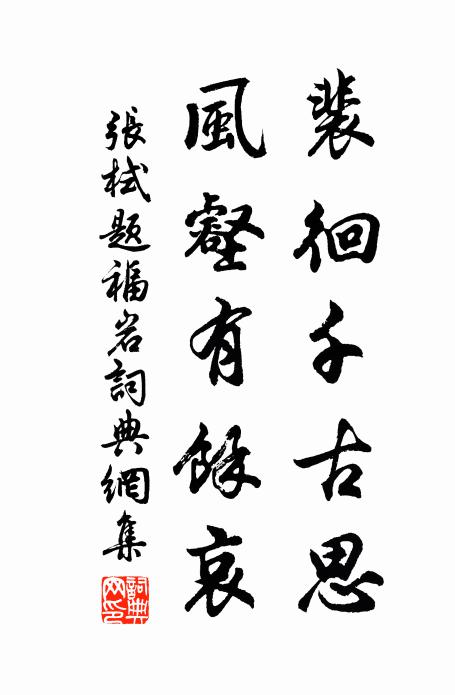 裴徊千古思
風壑有餘哀
張栻题福岩詞典網集
詞典网印